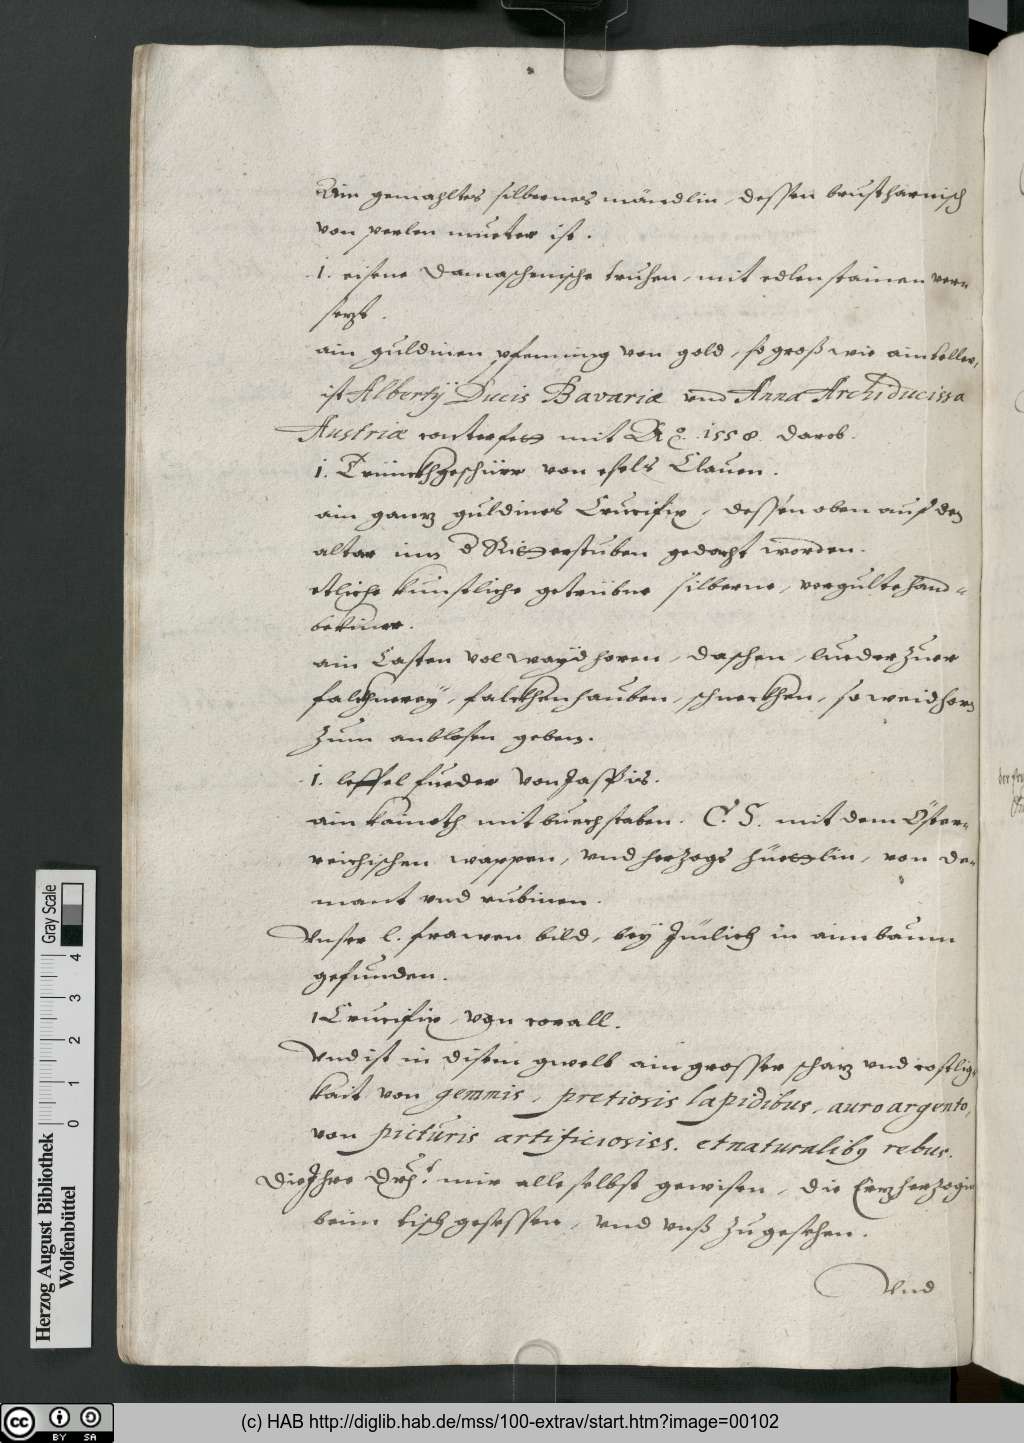 Ain gemahltes silbernes mändlin, dessen brustharnisch
von perlen mueter ist.
1. eisene Damaschenische truhen, mit edlen stainen ver=
sezt.
ain guldinen pfenning von gold, so groß wie ain teller,
ist Albertÿ Ducis Bavariæ und Anna Archiducissa
Austriæ conterfett mit Aº. 1558. darob.
1. Trünckhgeschürr von esels Clauen.
ain ganz guldines Crucifix, dessen oben auf dem
altar inn d Ritterstuben gedacht worden.
etliche künstliche getribne silberne, vergulte hand=
bekiner.
ain Casten vol waÿdhoren, daschen, lueder zuer
falchnereÿ, falckhenhauben, schneckhen, so weidhorn
zum anblosen geben.
1. leffel fueder von Jaspis.
ain kainoth mit buechstaben. C. S. mit dem Öster=
reichischen wappen, und herzogs hüettlin, von de=
mant und rubinen.
Unser l. frawen bild, beÿ Jnlich in aim baum
gefunden.
1 Crucifix, von corall.
Und ist in disem gwelb ain grosser schaz und costlig=
kait von gemmis, pretiosis lapidibus, auro argento,
von picturis artificiosiss. et naturalibq rebus.
Die Jhre Drht. mir alle selbst gewisen, die Erzherzogin
beim tisch gesessen, und unß zugesehen.
Und
Herzog August Bibliothek
Wolfenbüttel
Gray Scale
0 1 2 3 4
(c) HAB http://diglib.hab.de/mss/100-extrav/start.htm?image=00102
cc BY SA